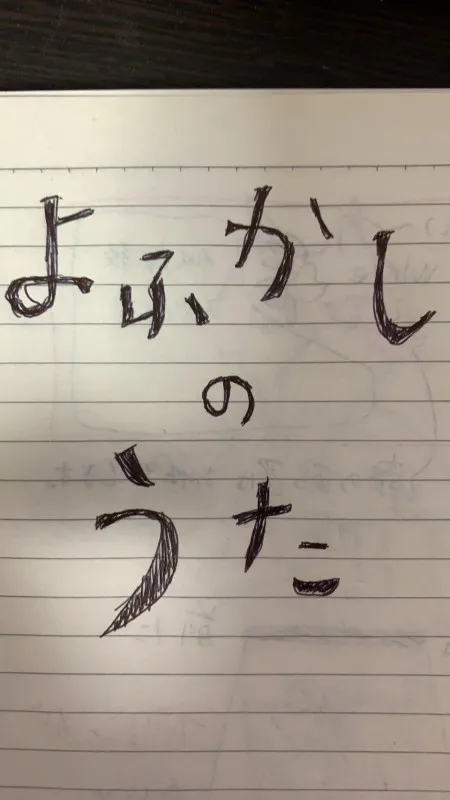 よふかし
の
うた